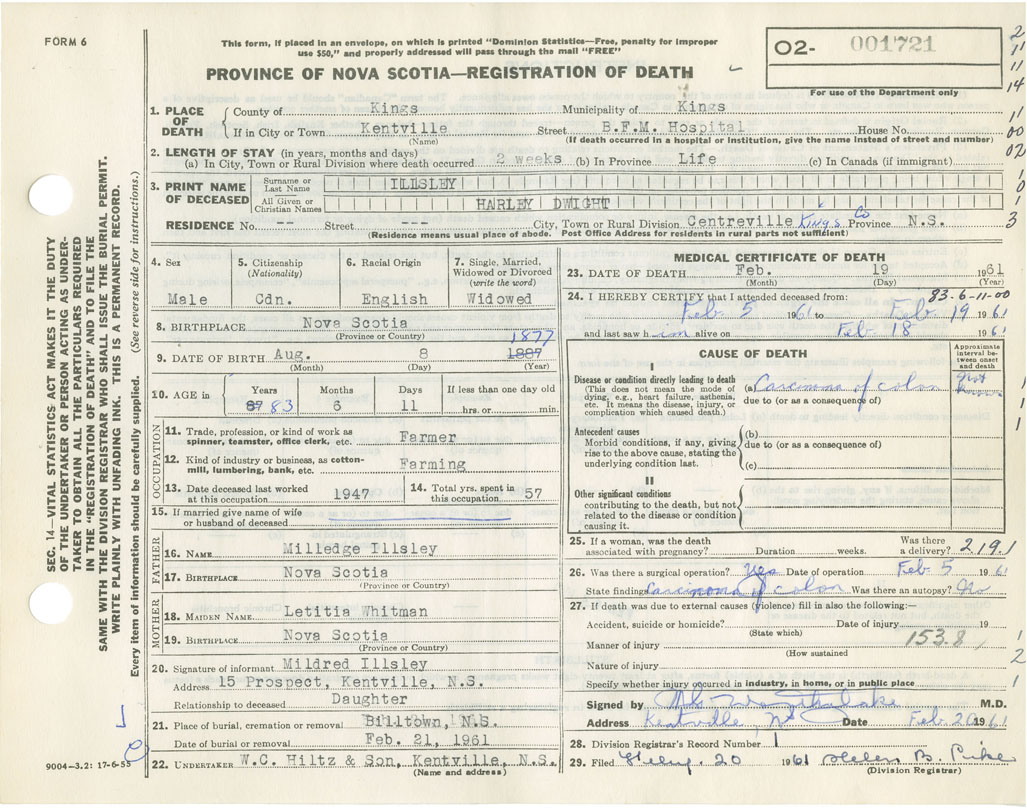 FORM 6
This form, if placed in an envelope, on which is printed "Dominion Statistics—Free, penalty for improper
use $50," and properly addressed will pass through the mail "FREE"
PROVINCE OF NOVA SCOTIA—REGISTRATION OF DEATH
O2- 001721
For use of the Department only
SEC. 14—VITAL STATISTICS ACT MAKES IT THE DUTY
OF THE UNDERTAKER OR PERSON ACTING AS UNDER-
TAKER TO OBTAIN ALL THE PARTICULARS REQUIRED
IN THE "REGISTRATION OF DEATH" AND TO FILE THE
SAME WITH THE DIVISION REGISTRAR WHO SHALL ISSUE THE BURIAL PERMIT.
WRITE PLAINLY WITH UNFADING INK. THIS IS A PERMANENT RECORD.
Every item of information should be carefully supplied. (See reverse side for instructions.)
1. PLACE OF DEATH
County of Kings Municipality of Kings
If in City or Town Kentville Street B.F.M. Hospital House No.
(Name) (If death occurred in a hospital or institution, give the name instead of street and number)
2. LENGTH OF STAY (in years, months and days)
(a) In City, Town or Rural Division where death occurred 2 weeks (b) In Province Life (c) In Canada (if immigrant)
3. PRINT NAME OF DECEASED
Surname or Last Name ILLSLEY
All Given or Christian Names HARLEY DWIGHT
RESIDENCE No. -- Street --- City, Town or Rural Division Centreville Kings Co Province N.S.
(Residence means usual place of abode. Post Office Address for residents in rural parts not sufficient)
4. Sex
Male
5. Citizenship
(Nationality)
Cdn.
6. Racial Origin
English
7. Single, Married,
Widowed or Divorced
(write the word)
Widowed
8. BIRTHPLACE Nova Scotia
(Province or Country)
1877
9. DATE OF BIRTH Aug. 8 1887
(Month) (Day) (Year)
10. AGE in
Years Months Days If less than one day old
87 83 6 11 hrs. or min.
OCCUPATION
11. Trade, profession, or kind of work as
spinner, teamster, office clerk, etc. Farmer
12. Kind of industry or business, as cotton-
mill, lumbering, bank, etc. Farming
13. Date deceased last worked
at this occupation 1947
14. Total yrs. spent in
this occupation 57
15. If married give name of wife
or husband of deceased
FATHER
16. NAME Milledge Illsley
17. BIRTHPLACE Nova Scotia
(Province or Country)
MOTHER
18. MAIDEN NAME Letitia Whitman
19. BIRTHPLACE Nova Scotia
(Province or Country)
20. Signature of informant Mildred Illsley
Address 15 Prospect, Kentville, N.S.
Relationship to deceased Daughter
21. Place of burial, cremation or removal Billtown, N.S.
Date of burial or removal Feb. 21, 1961
22. UNDERTAKER W.C. Hiltz & Son, Kentville, N.S.
(Name and address)
9004—3.2: 17-6-55
MEDICAL CERTIFICATE OF DEATH
23. DATE OF DEATH Feb. 19 1961
(Month) (Day) (Year)
24. I HEREBY CERTIFY that I attended deceased from: 83-6-11-00
Feb 5 1961 to Feb 19 1961
and last saw him alive on Feb 18 1961
CAUSE OF DEATH
Approximate
interval be-
tween onset
and death
I
Disease or condition directly leading to death
(This does not mean the mode of
dying, e.g., heart failure, asthenia,
etc. It means the disease, injury, or
complication which caused death.)
(a) Carcinoma of colon
due to (or as a consequence of)
not known
Antecedent causes
Morbid conditions, if any, giving
rise to the above cause, stating the
underlying condition last.
(b)
due to (or as a consequence of)
(c)
II
Other significant conditions
contributing to the death, but not
related to the disease or condition
causing it.
25. If a woman, was the death
associated with pregnancy? Duration weeks. Was there
a delivery? 219.1
26. Was there a surgical operation? Yes Date of operation Feb 5 1961
State findings Carcinoma of colon Was there an autopsy? No
27. If death was due to external causes (violence) fill in also the following:—
Accident, suicide or homicide? Date of injury 19
(State which)
Manner of injury 153.8
(How sustained
Nature of injury
Specify whether injury occurred in industry, in home, or in public place
Signed by M.D.
Address Kentville, NS Date Feb 20 1961
28. Division Registrar's Record Number 1
29. Filed 20 1961 Helen B. Pike
(Division Registrar)
2
11
11
14
11
00
02
1
0
1
3
1
1
1
1
1
2
1